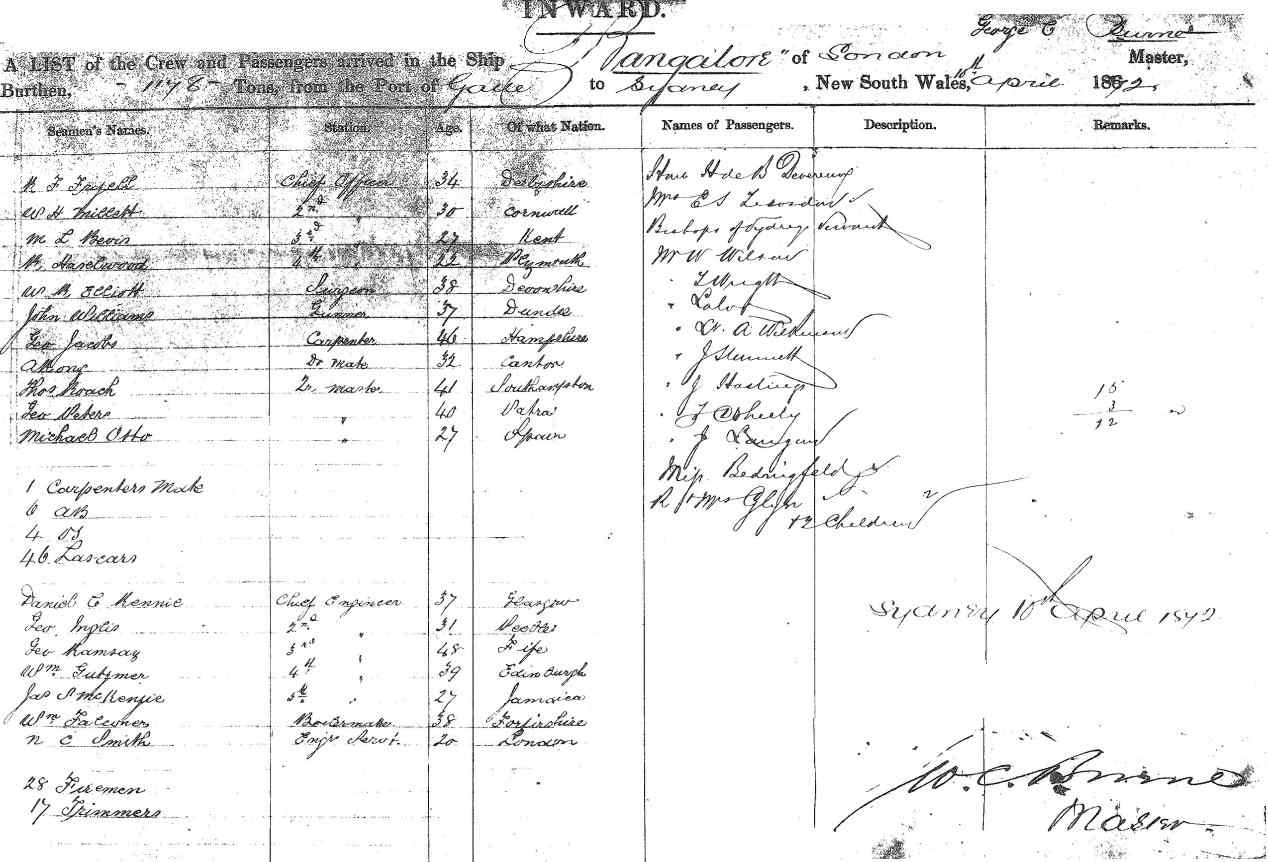 INWARD.
George C Burne
A LIST of the Crew and Passengers arrived in the Ship "Bangalore" of London Master,
Burthen, - 1178 - Tons, from the Port of Galle to Sydney, New South Wales, 10th April 1872.
Seamen's Names. Station. Age. Of what Nation. Names of Passengers. Description. Remarks.
R F Frizell Chief Officer 34 Derbyshire
W H Millett 2nd " 30 Cornwall
M L Bevis 3rd " 27 Kent
Haselwood 4th " 22 Plymouth
W R Elliott Surgeon 38 Devonshire
John Williams Gunner 37 Dundee
Geo Jacobs Carpenter 46 Hampshire
Ahong Do Mate 32 Canton
Thos Roach Qr Master 41 Southampton
Geo Peters " 40 Patras
Michael Otto " 27 Spain
1 Carpenters Mate
6 AB
4 OS
46 Lascars
Daniel C Rennie Chief Engineer 37 Glasgow
Geo. Inglis 2nd " 31 Peebles
Geo Ramsay 3rd " 48 Fife
Wm Gutzmer 4th " 39 Edinburgh
Jas S McKenzie 5th " 27 Jamaica
Wm Falconer Boilermaker 38 Forfirshire
N C Smith Engrs Servt. 20 London
28 Firemen
17 Trimmers
Hon H de B Devereux
Mrs E S
Bishops of Sydney Servant
Mr W Wilson
" T Wright
" Lalor
" Lt. A Wilkinson
" J Stennett
" J Hastings
"
" J
Miss Bedingfeld
R & Mrs Glyn
+ 2 Children 2
15
3
12
Sydney 10th April 1872
W. C. Burne
Master